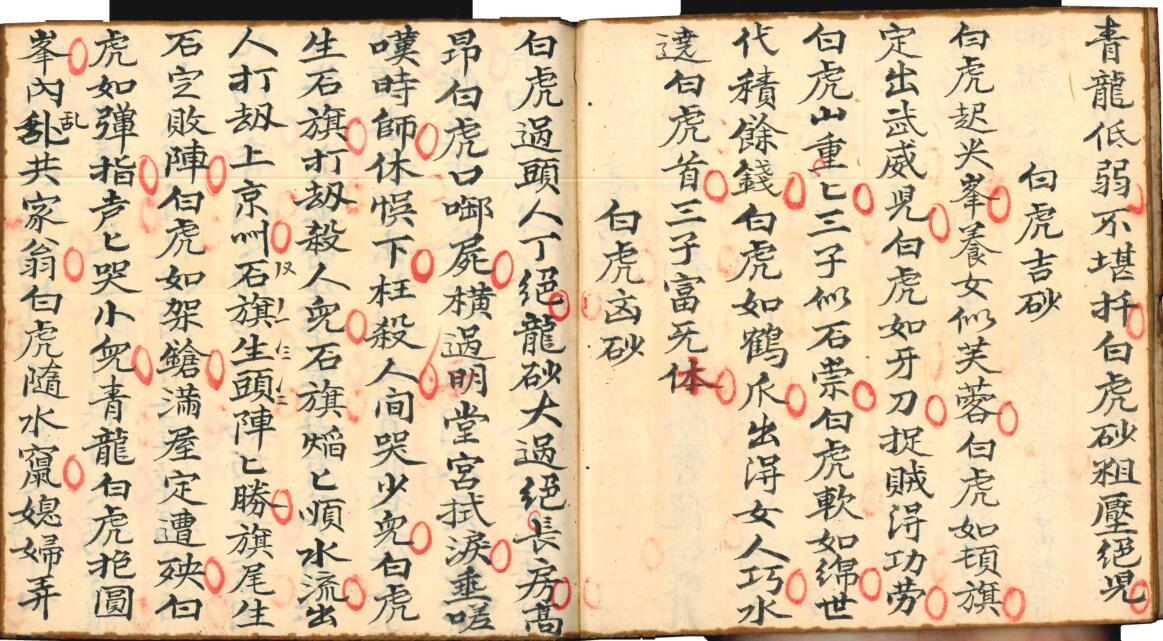 青龍低弱不堪扦白虎砂粗壓絕児
白虎吉砂
白虎起尖峯養女似芙蓉白虎如頓旗
定出武威児白虎如牙刀捉賊淂功劳
白虎山重匕三子似石崇白虎軟如綿世
代積餘錢白虎如鶴爪出淂女人巧水
遶白虎首三子富无休
白虎凶砂
白虎過頭人丁絕龍砂大過絕長房高
昂白虎口啣屍橫過明堂宮拭淚垂嗟
嘆時師休悞下枉殺人间哭少児白虎
生石旗打刼殺人児石旗焰匕順水流出
人打刼上京州石旗生頭陣匕勝旗尾生
石定敗陣白虎如架鎗滿屋定遭殃白
虎如彈指声匕哭小児青龍白虎抱圓
峯內乱共家翁白虎隨水竄媳婦弄